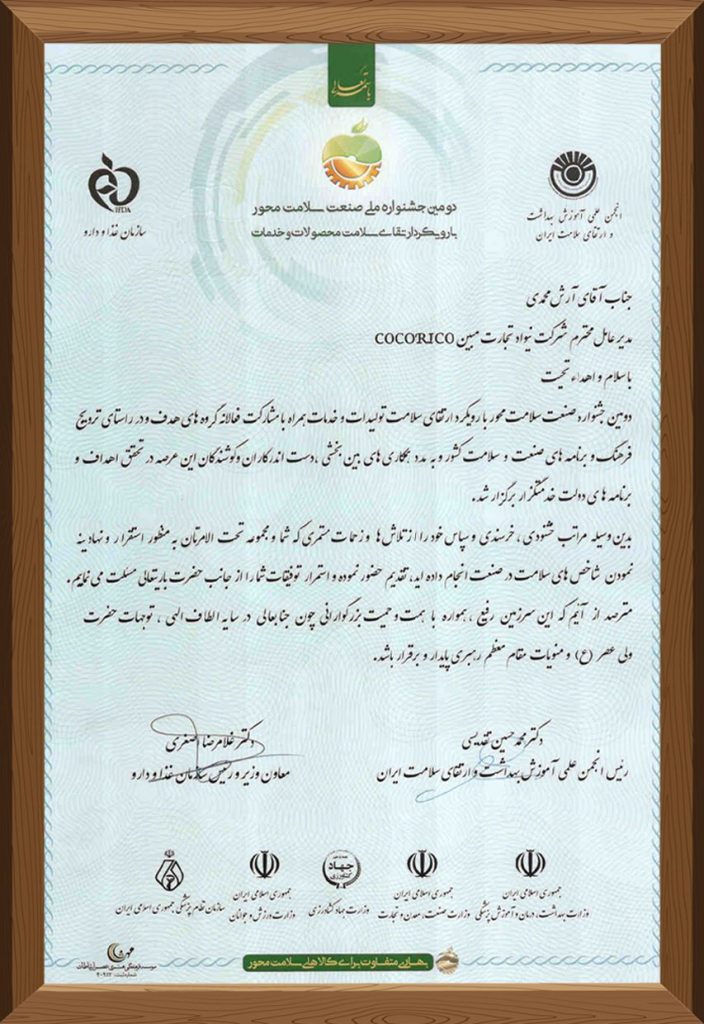 باسمه تعالی
دومین جشنواره ملی صنعت سلامت محور
با رویکرد ارتقای سلامت محصولات و خدمات
انجمن علمی آموزش بهداشت
و ارتقای سلامت ایران
IFDA
سازمان غذا و دارو
جناب آقای آرش محمدی
مدیر عامل محترم شرکت نیواد تجارت مبین COCO'RICO
با سلام و اهداء تحیت
دومین جشنواره صنعت سلامت محور با رویکرد ارتقای سلامت تولیدات و خدمات همراه با مشارکت فعالانه گروه های هدف و در راستای ترویج
فرهنگ و برنامه های صنعت و سلامت کشور و به مدد همکاری های بین بخشی ، دست اندرکاران و کوشندگان این عرصه در تحقق اهداف و
برنامه های دولت خدمتگزار برگزار شد.
بدین وسیله مراتب خشنودی ، خرسندی و سپاس خود را از تلاش ها و زحمات مستمری که شما و مجموعه تحت الامرتان به منظور استقرار و نهادینه
نمودن شاخص های سلامت در صنعت انجام داده اید، تقدیم حضور نموده و استمرار توفیقات شما را از جانب حضرت باریتعالی مسئلت می نماییم .
مترصد از آنیم که این سرزمین رفیع ، همواره با همت و حمیت بزرگوارانی چون جنابعالی در سایه الطاف الهی ، توجهات حضرت
ولی عصر (ع) و منویات مقام معظم رهبری پایدار و برقرار باشد.
دکتر محمد حسین تقدیسی
رئیس انجمن علمی آموزش بهداشت و ارتقای سلامت ایران
دکتر غلامرضا اصغری
معاون وزیر و رئیس سازمان غذا و دارو
جمهوری اسلامی ایران
وزارت بهداشت، درمان و آموزش پزشکی
جمهوری اسلامی ایران
وزارت صنعت، معدن و تجارت
جهاد
کشاورزی
وزارت جهاد کشاورزی
جمهوری اسلامی ایران
وزارت ورزش و جوانان
سازمان نظام پزشکی جمهوری اسلامی ایران
جهانی متفاوت برای کالاهای سلامت محور